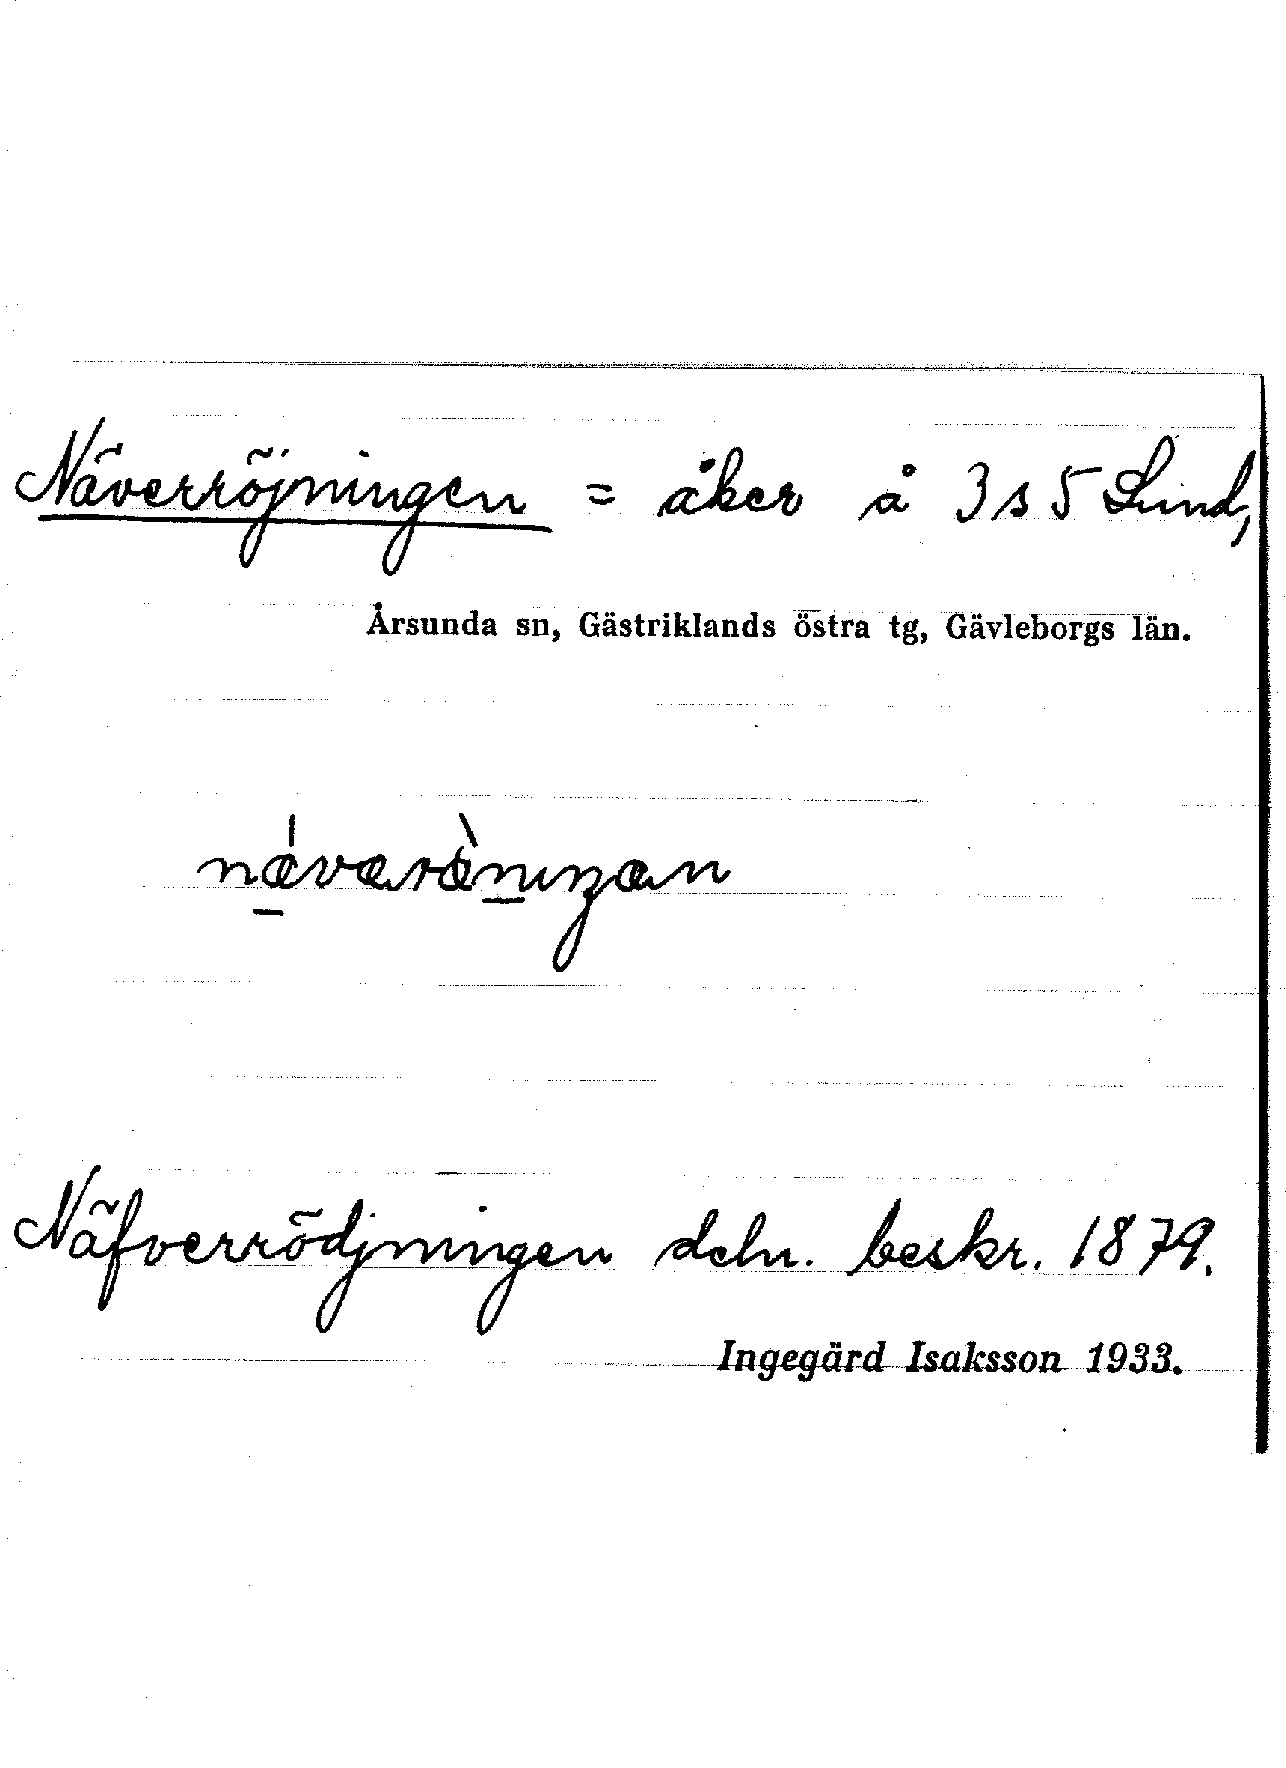 Näverröjningen = åker å 3 s 5 Lund,
Årsunda sn, Gästriklands östra tg, Gävleborgs län.
Näfverrödjningen deln. beskr. 1879.
Ingegärd Isaksson 1933.